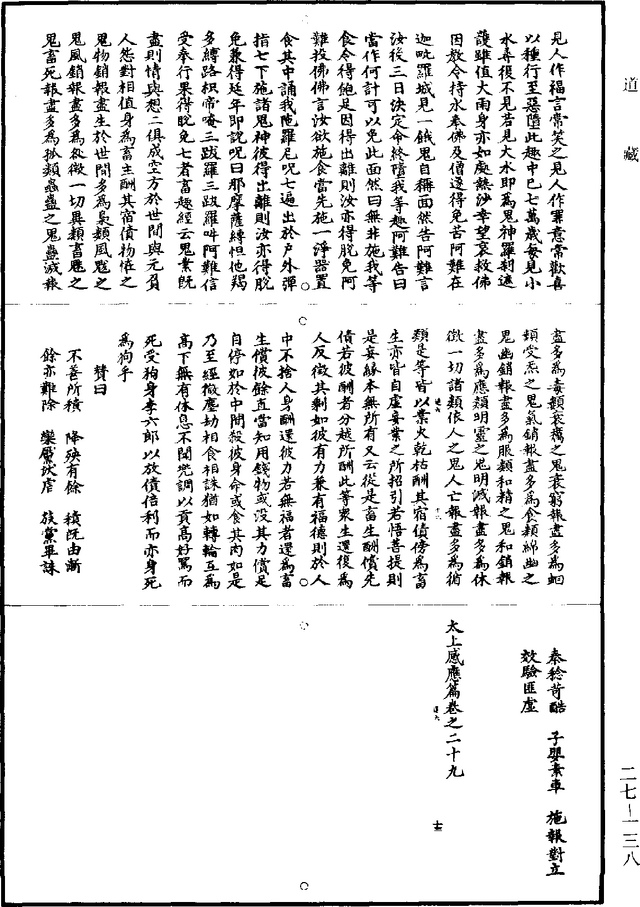 道藏
見人作福言常笑之見人作罪意常歡喜
以種行至惡墮此趣中巳七萬歲每見小
水尋復不見若見大水即為鬼神羅刹遮
護雖值大雨身亦如處熱沙幸望哀救佛
因敎令持水奉佛及僧遂得免苦阿難在
迦毗羅城見一餓鬼自稱面然告阿難言
汝後三日決定命終墮我等趣阿難告曰
當作何計可以免此面然曰無非施我等
食令得飽足因得出離則汝亦得脫免阿
難投佛佛言汝欲施食當先施一淨器置
食其中誦我陁羅尼呪七遍出於戶外彈
指七下施諸鬼神彼得出離則汝亦得脫
免兼得延年即說呪曰那摩薩縛怛他羯
多縛路枳帝唵三跋羅三跋羅吽阿難信
受奉行果得脫免七者畜趣經云鬼業旣
盡則情與想二俱成空方於世間與元負
人怨對相值身為畜生酬其宿債物怪之
鬼物銷報盡生於世間多為梟類風魃之
鬼風銷報盡多為咎徵一切異類畜魅之
鬼畜死報盡多為狐類蟲蠱之鬼蠱滅報
盡多為毒類衰癘之鬼衰窮報盡多為蛔
類受炁之鬼氣銷報盡多為食類綿幽之
鬼幽銷報盡多為服類和精之鬼和銷報
盡多為應類明靈之鬼明滅報盡多為休
徵一切諸類依人之鬼人亡報盡多為循
類是等皆以業火乾枯酬其宿債傍為畜
生亦皆自虛妄業之所招引若悟菩提則
是妄緣本無所有又云從是畜生酬償先
債若彼酬者分越所酬此等衆生還復為
人反徵其剩如彼有力兼有福德則於人
中不捨人身酬還彼力若無福者還為畜
生償彼餘直當知用錢物或没其力償足
自停如於中間殺彼身命或食其肉如是
乃至經微塵劫相食相誅猶如轉輪互為
高下無有休息不聞兜調以貢高好罵而
死受狗身李六郎以放債倍利而亦身死
為狗乎
賛曰
不善所積　降殃有餘　積旣由漸
餘亦難除　欒黶汰虐　族黨畢誅
秦稔苛酷　子嬰素車　施報對立
效驗匪虛
太上感應篇卷之二十九
二七—一三八